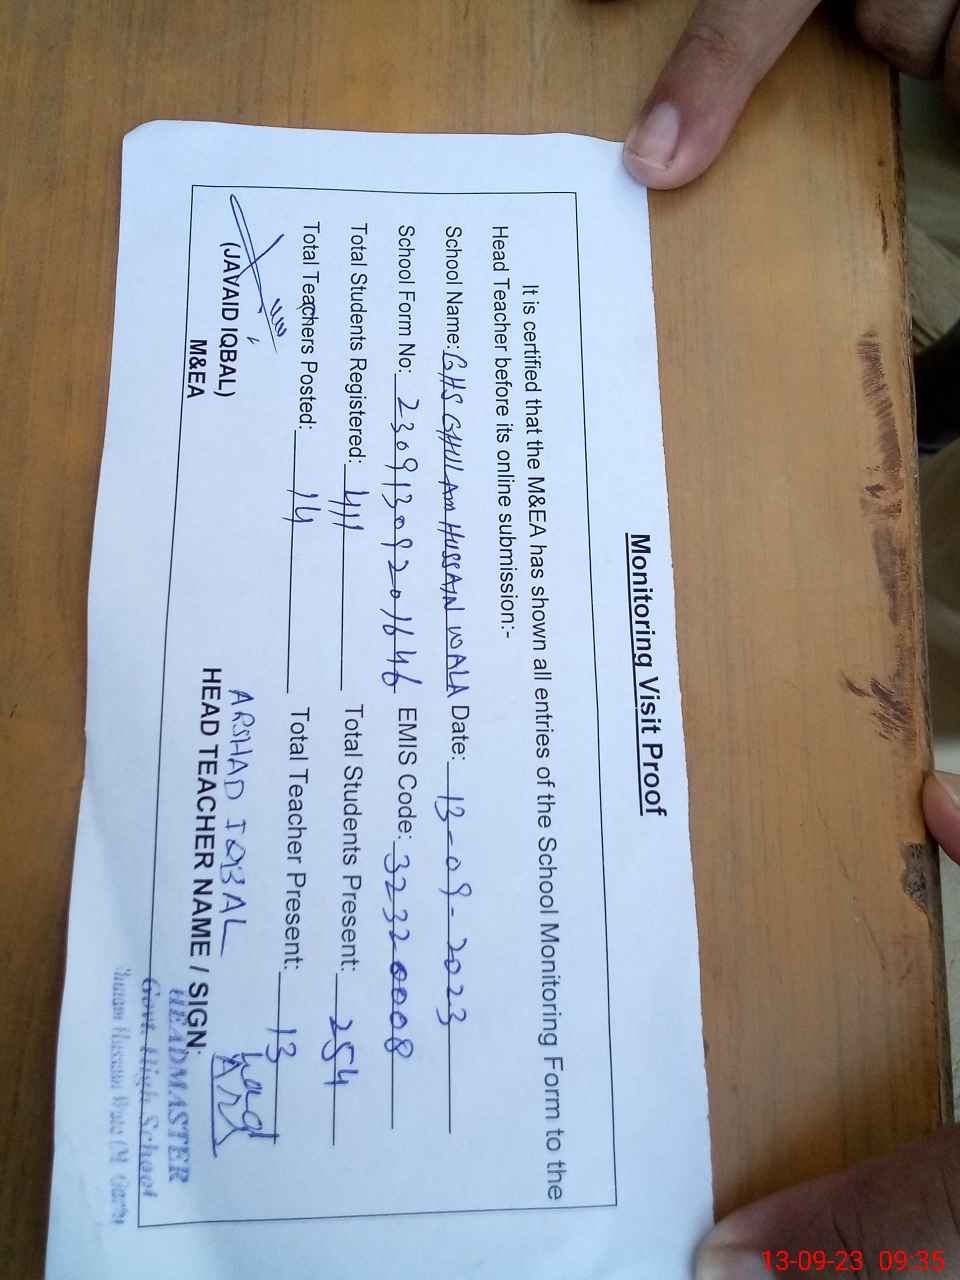 Monitoring Visit Proof
It is certified that the M&EA has shown all entries of the School Monitoring Form to the
Head Teacher before its online submission:-
School Name: GHS GHULAM HUSSAIN WALA Date: 13-09-2023
School Form No: 23091309201646 EMIS Code: 32320008
Total Students Registered: 411 Total Students Present: 254
Total Teachers Posted: 14 Total Teacher Present: 13
ARSHAD IQBAL
(JAVAID IQBAL)
M&EA
HEAD TEACHER NAME / SIGN:
HEADMASTER
Govt. High School
Hussain Wala
13-09-23 09:35